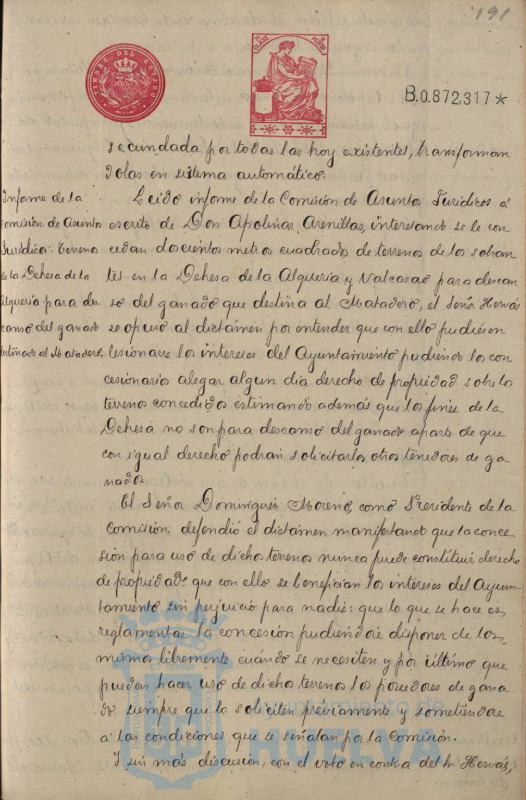 191
TIMBRE DEL ESTADO
B.0.872.317*
secundada por todas las hoy existentes, transforman
dolas en sistema automático.
Informe de la
Comisión de Asuntos
Jurídicos: Terreno
de la Dehesa de la
Alquería para des
canso del ganado
destinado al Matadero.
Leido informe de la Comisión de Asuntos Jurídicos á
escrito de Don Apolinar Arenillas, interesando se le con
cedan doscientos metros cuadrados de terrenos de los sobran
tes en la Dehesa de la Alquería y Valcasao para descan
so del ganado que destina al Matadero, el Señor Hervás
se opuso al dictámen por entender que con ello pudiesen
lesionarse los intereses del Ayuntamiento pudiendo los con
cesionarios alegar algun dia derecho de propiedad sobre los
terrenos concedidos estimando además que los fines de la
Dehesa no son para descanso del ganado aparte de que
con igual derecho podrán solicitarlos otros tenedores de ga
nados.
El Señor Dominguez Moreno, como Presidente de la
Comisión, defendió el dictámen manifestando que la conce
sión para uso de dichos terrenos nunca puede constituir derecho
de propiedad: que con ello se benefician los intereses del Ayun
tamiento sin perjuicio para nadie: que lo que se hace es
reglamentar la concesión pudiéndose disponer de los
mismos libremente cuándo se necesiten y por último que
pueden hacer uso de dichos terrenos los poseedores de gana
do siempre que lo soliciten préviamente y sometiendose
á las condiciones que se señalan por la Comisión.
Y sin más discusión, con el voto en contra del Sr. Hervás,
Ayuntamiento de
HUELVA